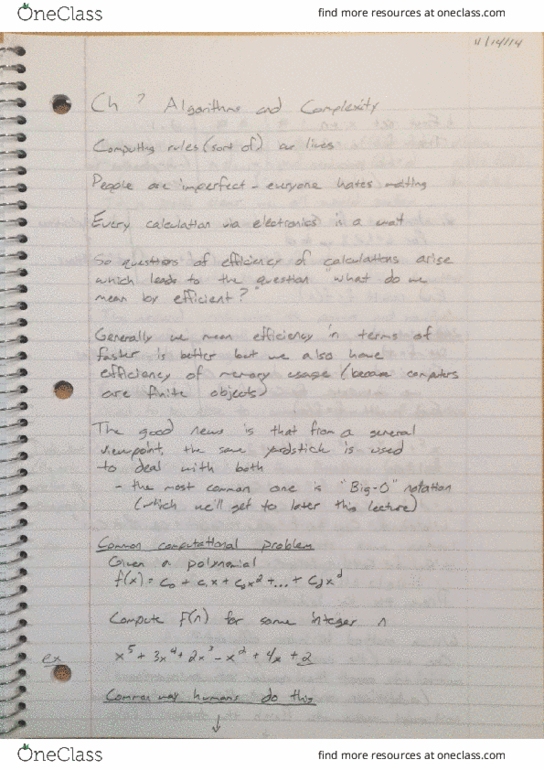 OneClass find more resources at oneclass.com
11/14/14
Ch 7 Algorithms and Complexity
Computing rules (sort of) our lives
People are imperfect - everyone hates waiting
Every calculation via electronics is a wait
So questions of efficiency of calculations arise
which leads to the question "what do we
mean by efficient?"
Generally we mean efficiency in terms of
faster is better but we also have
efficiency of memory usage (because computers
are finite objects)
The good news is that from a general
viewpoint, the same yardstick is used
to deal with both
- the most common one is "Big-O" notation
(which we'll get to later this lecture)
Common computational problem
Given a polynomial
f(x) = c₀ + c₁x + c₂x² + ... + c_d x^d
Compute f(n) for some integer n
ex x⁵ + 3x⁴ + 2x³ - x² + 4x + 2
Common way humans do this
↓
OneClass find more resources at oneclass.com